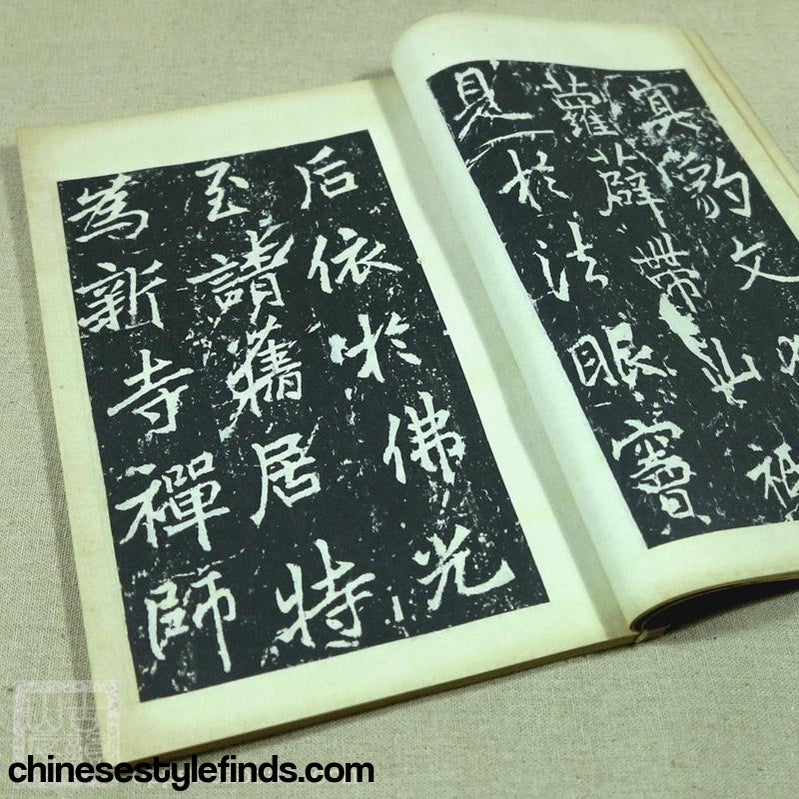 豹文
蘿薜帶山祇
見於法眼竇
后依於佛光
至請舊居特
為新寺禪師
chinesestylefinds.com